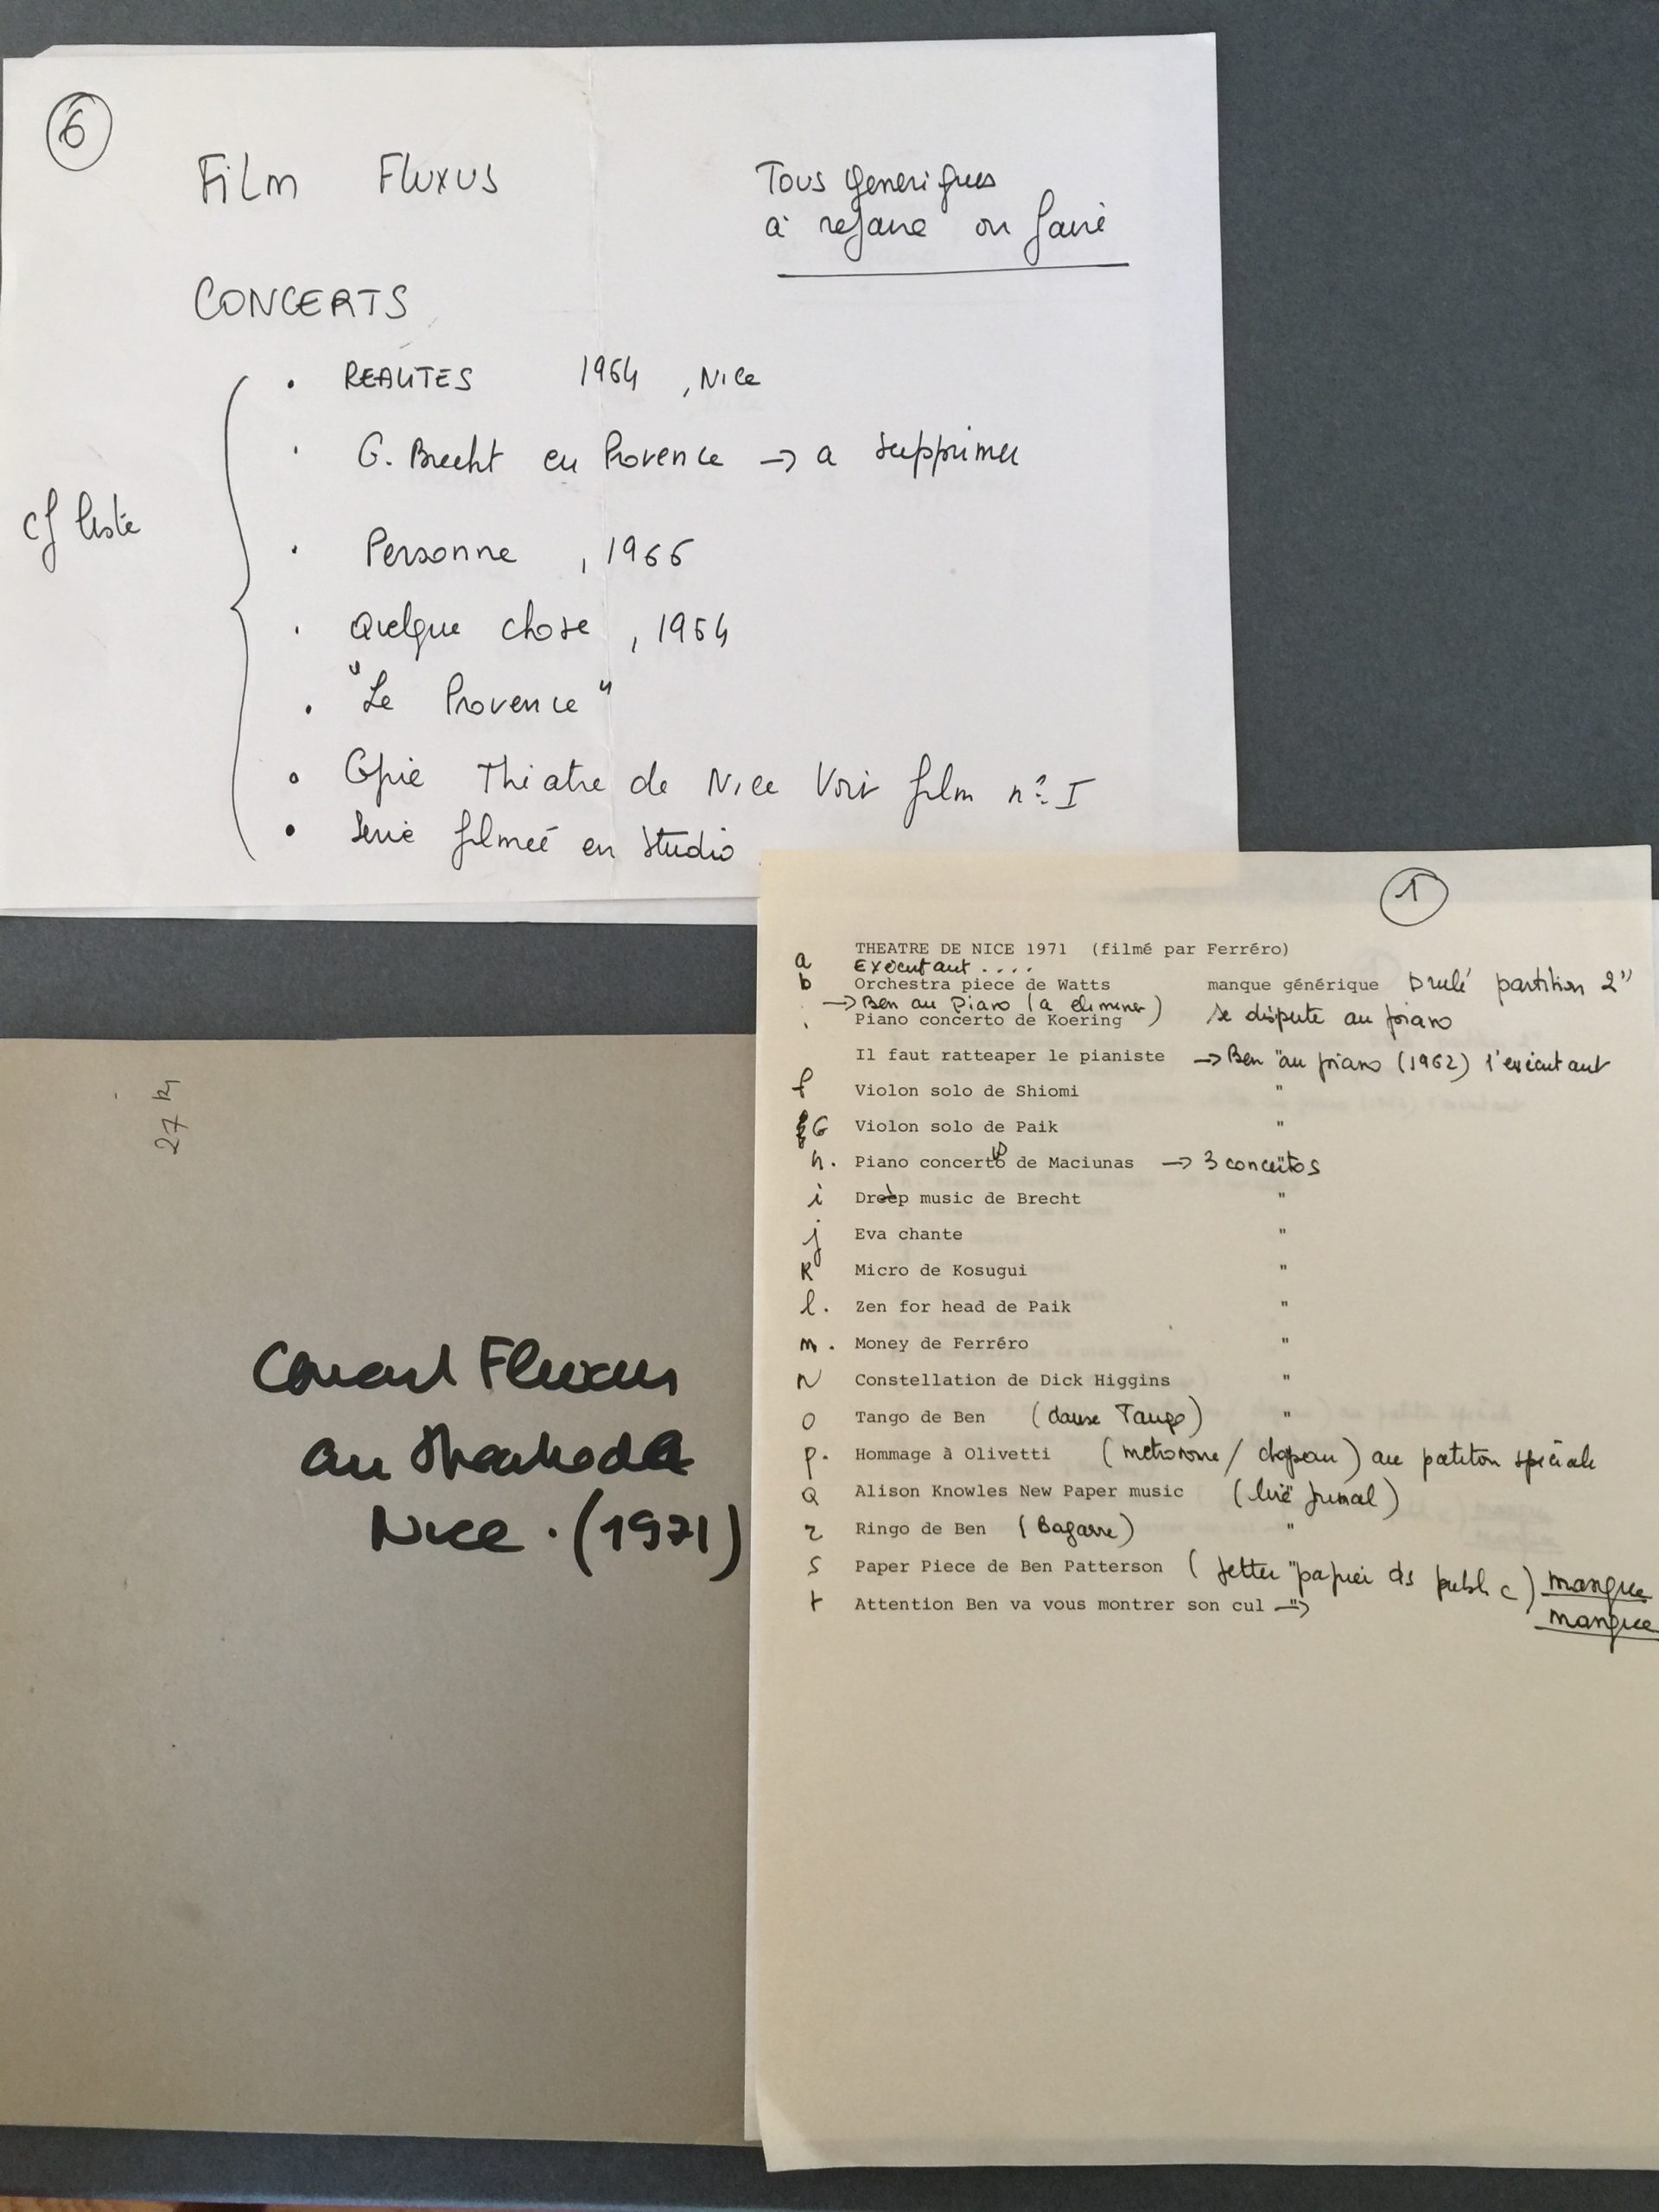 6
Film Fluxus
Tous generiques
à refaire ou faire
CONCERTS
cf liste
• REALITES 1964, Nice
• G. Brecht en Provence → a supprimer
• Personne, 1966
• Quelque chose, 1964
• "Le Provence"
• Copie Théatre de Nice Voir film n° I
• Serie filmée en Studio
27 k
Concert Fluxus
au Theatre de
Nice. (1971)
1
THEATRE DE NICE 1971 (filmé par Ferréro)
a Executant ....
b Orchestra piece de Watts manque générique Brulé partition 2"
→ Ben au Piano (a eliminer)
Piano concerto de Koering se dispute au piano
Il faut ratteaper le pianiste → Ben "au piano (1962) l'exécutant
f Violon solo de Shiomi "
G Violon solo de Paik "
h. Piano concerto de Maciunas → 3 concertos
i Drèp music de Brecht "
j Eva chante "
K Micro de Kosugui "
l. Zen for head de Paik "
m. Money de Ferréro "
N Constellation de Dick Higgins "
O Tango de Ben (danse Tango) "
p. Hommage à Olivetti (métronome / chapeau) au patition spéciale
Q Alison Knowles New Paper music (lire journal)
r Ringo de Ben (Bagarre) "
S Paper Piece de Ben Patterson (Jetter "papier ds public) manque
t Attention Ben va vous montrer son cul "→ manque